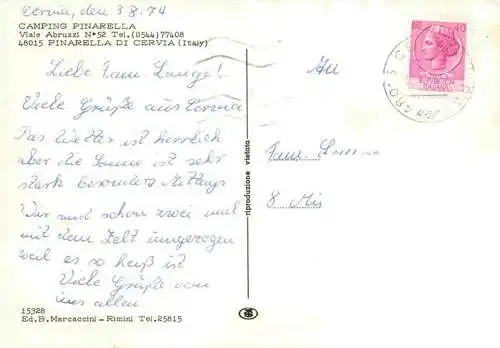 Cervia, den 3 8. 74
CAMPING PINARELLA
Viale Abruzzi N° 52 Tel. (0544) 77408
48015 PINARELLA DI CERVIA (Italy)
Liebe Fam. Lange!
Viele Grüße aus Cervia
Das Wetter ist herrlich
aber die Sonne ist sehr
stark besonders Mittags
Wir sind schon zwei mal
mit dem Zelt umgezogen
weil es so heiß ist
Viele Grüße von
uns allen
15328
Ed. B. Marcaccini - Rimini Tel. 25815
riproduzione vietata
An
Fam.
8